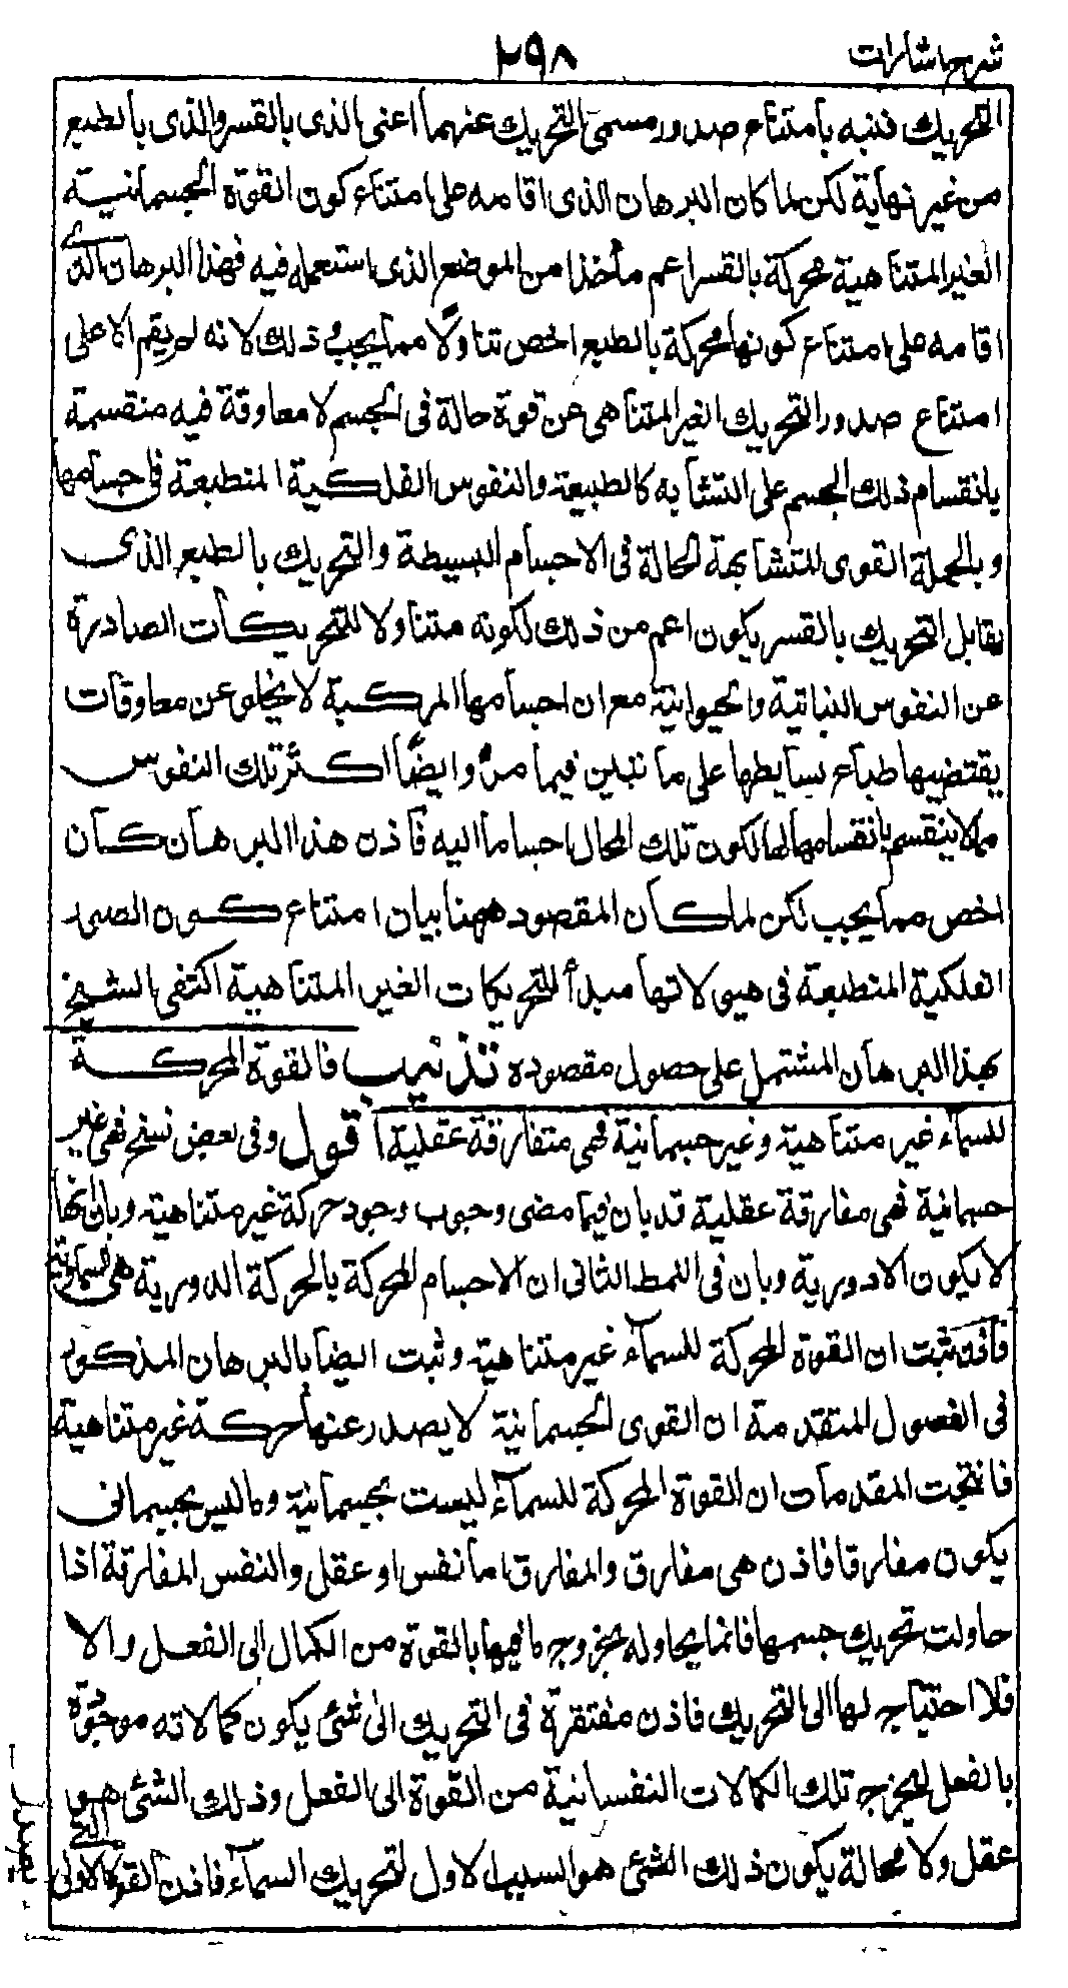 شرح اشارات
٢٩٨
التحريك فنبه بامتناع صدور مسمى التحريك عنهما اعنى الذى بالقسر والذى بالطبع
من غير نهاية لكن لما كان البرهان الذى اقامه على امتناع كون القوة الجسمانية
الغير المتناهية محركة بالقسر اعم مأخذا من الموضع الذى استعمله فيه فهذا البرهان الذى
اقامه على امتناع كونها محركة بالطبع اخص تناولا مما يجب و ذلك لانه لم يقم الا على
امتناع صدور التحريك الغير المتناهى عن قوة حالة فى الجسم لا معاوقة فيه منقسمة
بانقسام ذلك الجسم على التشابه كالطبيعة والنفوس الفلكية المنطبعة فى اجسامها
وبالجملة القوى المتشابهة الحالة فى الاجسام البسيطة والتحريك بالطبع الذى
يقابل التحريك بالقسر يكون اعم من ذلك لكونه متناولا للتحريكات الصادرة
عن النفوس النباتية والحيوانية مع ان اجسامها المركبة لا يخلو عن معاوقات
يقتضيها طبائع بسايطها على ما تبين فيما مر وايضا اكثر تلك النفوس
مما لا ينقسم بانقسام محالها لكون تلك المحال اجساما آلية فاذن هذا البرهان كان
اخص مما يجب لكن لما كان المقصود ههنا بيان امتناع كون الصور
الفلكية المنطبعة فى هيولاتها مبدأ للتحريكات الغير المتناهية اكتفى الشيخ
بهذا البرهان المشتمل على حصول مقصوده تذنيب فالقوة المحركة
للسماء غير متناهية وغير جسمانية فهى مفارقة عقلية اقول وفى بعض نسخ فهى غير
جسمانية فهى مفارقة عقلية قد بان فيما مضى وجوب وجود حركة غير متناهية وبان انها
لا يكون الا دورية وبان فى النمط الثانى ان الاجسام المحركة بالحركة الدورية هى السماوية
فاذن ثبت ان القوة المحركة للسماء غير متناهية وثبت ايضا بالبرهان المذكور
فى الفصول المتقدمة ان القوى الجسمانية لا يصدر عنها حركة غير متناهية
فانتجت المقدمات ان القوة المحركة للسماء ليست بجسمانية وما ليس بجسمانى
يكون مفارقا فاذن هى مفارق والمفارق اما نفس او عقل والنفس المفارقة اذا
حاولت تحريك جسمها فانما يحاوله بخروج ما فيها بالقوة من الكمال الى الفعل والا
فلا احتياج لها الى التحريك فاذن مفتقرة فى التحريك الى شئ يكون كمالاته موجودة
بالفعل ليخرج تلك الكمالات النفسانية من القوة الى الفعل وذلك الشئ هو
عقل ولا محالة يكون ذلك الشئ هو السبب الاول لتحريك السماء فاذن القوة الاولى التى